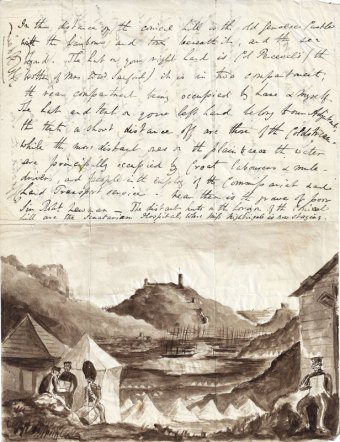 In the distance on the conical hill is the old Genoese Castle
with the harbour and town beneath it, and the sea
beyond. The hut on your right hand is Col Perceval's (the
brother of Mrs ) it is in two compartments,
the rear compartment being occupied by and myself.
The hut and tent on your left hand belong to our Hospital,
the tents, a short distance off are those of the Coldstream
while the more distant ones on the plain near the water
are principally occupied by Croat labourers & mule
drivers, and people in the employ of the Commissariat and
Land Transport service near them is the grave of poor
Sir Robt Newman The distant huts on the of the conical
hill are the Sanatarian Hospitals, where Miss Nightingale is now staying.